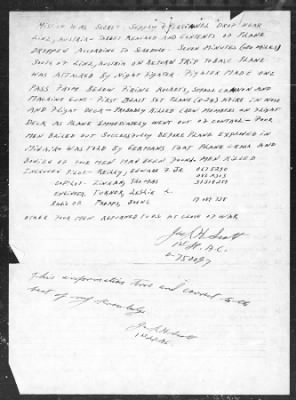 Mission was secret - supply & personnel drop near
Linz, Austria - Target reached and contents of plane
dropped according to schedule - Seven minutes
South of Linz, Austria on return trip to base plane
was attacked by night fighter - Fighter made one
pass from below firing rockets, small cannon and
machine guns - First blast set plane (B-24) afire in nose
and flight deck - Probably killed crew members on flight
deck as plane immediately went out of control - Four
men bailed out successfully before plane exploded in
midair. Was told by Germans that plane crash and
bodies of four men had been found. Men killed
included Pilot - Reilly, Edward F. Jr
Copilot -
Engineer Turner, Leslie L
other four men reported POWs at close of war
Jack H. Scott
1st Lt. A.C.
This information true and correct to the
best of my knowledge